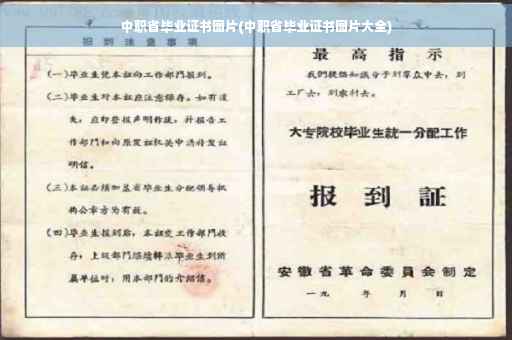 中职省毕业证书图片(中职省毕业证书图片大全)
报到注意事项
(一)毕业生凭本证向工作部门报到。
(二)毕业生对本证应注意保存。如有遗
失,应即登报声明作废,并报告工
作部门和向原发证机关申请补发证
明信。
(三)本证必须加盖省毕业生分配领导机
构公章方为有效。
(四)毕业生报到后,本证交工作部门收
存;上级部门继续转派毕业生到所
属单位时,用本部门的介绍信。
最高指示
我们提倡知识分子到群众中去,到
工厂去,到农村去。
大专院校毕业生统一分配工作
报到证
安徽省革命委员会制定
一九 年 月 日